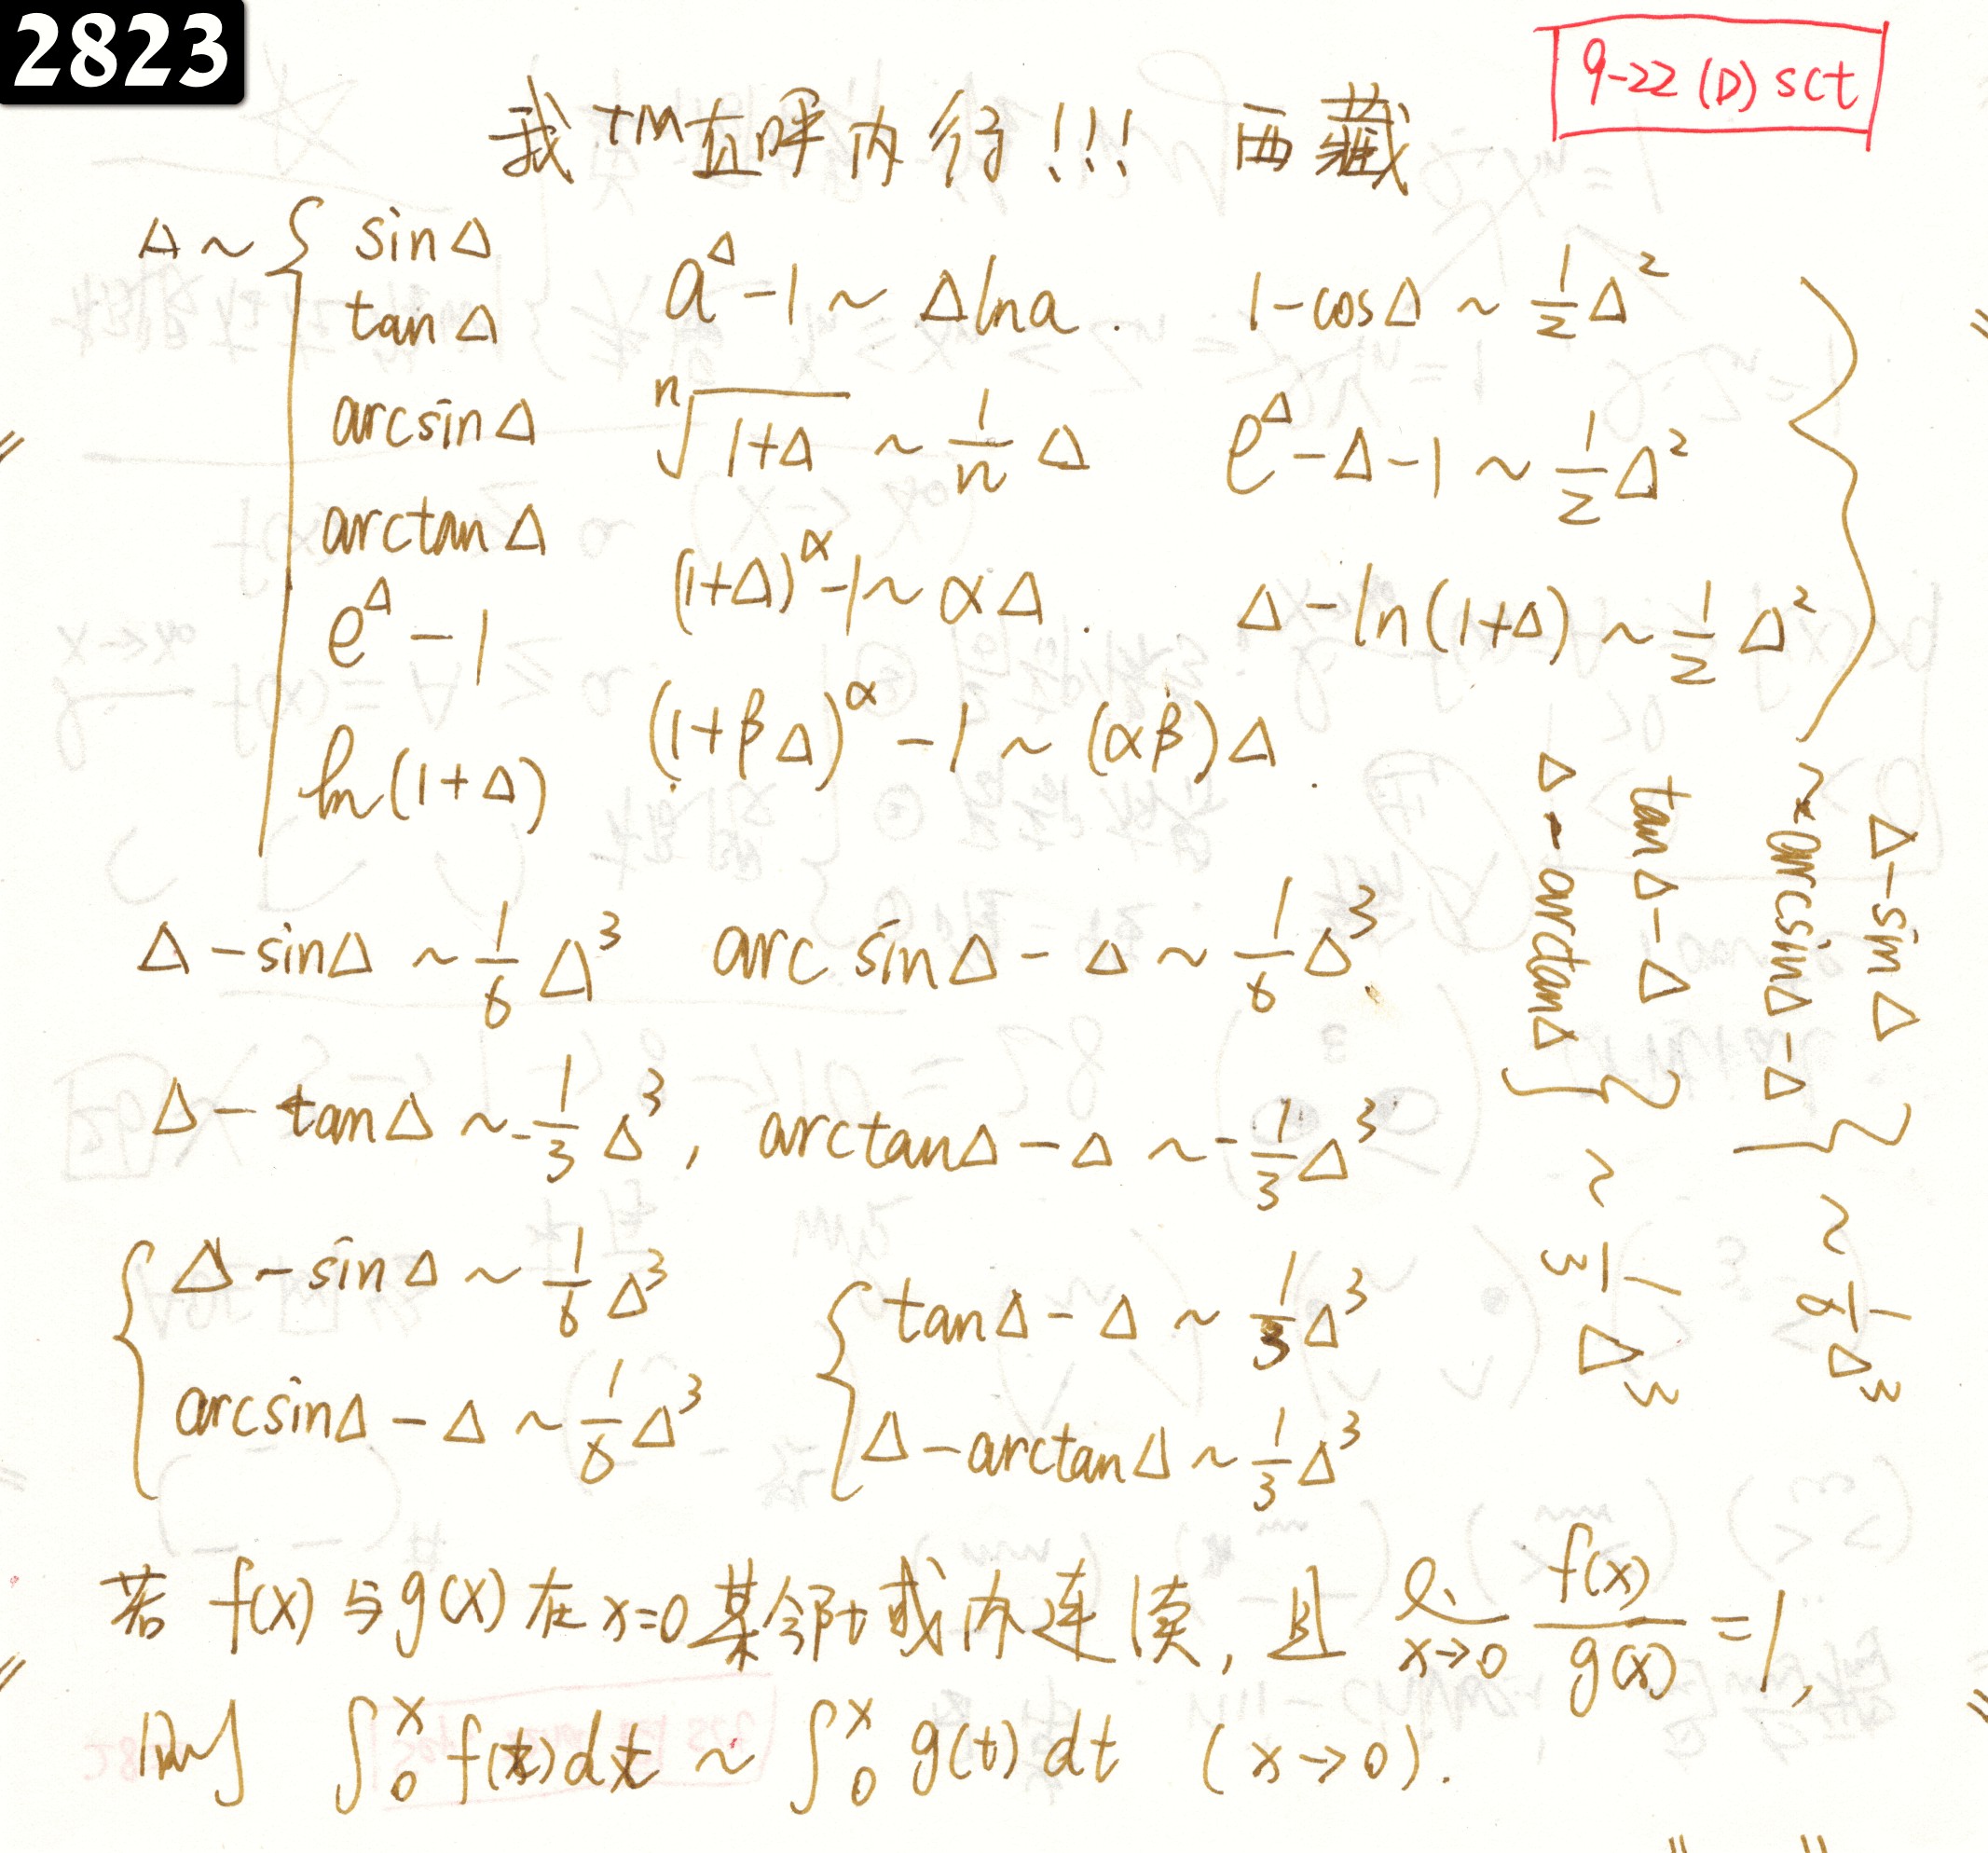 2823
9-22 (D) sct
我TM直呼内行!!! 西藏
Δ ~ { sinΔ
tanΔ
arcsinΔ
arctanΔ
e^Δ - 1
ln(1+Δ)
a^Δ - 1 ~ Δlna.
ⁿ√(1+Δ) ~ 1/n Δ
(1+Δ)^α - 1 ~ αΔ.
(1+βΔ)^α - 1 ~ (αβ)Δ.
1-cosΔ ~ 1/2 Δ²
e^Δ - Δ - 1 ~ 1/2 Δ²
Δ - ln(1+Δ) ~ 1/2 Δ²
Δ - sinΔ ~ 1/6 Δ³ arc sinΔ - Δ ~ 1/6 Δ³.
Δ - tanΔ ~ -1/3 Δ³, arctanΔ - Δ ~ -1/3 Δ³
{ Δ - sinΔ ~ 1/6 Δ³
arcsinΔ - Δ ~ 1/6 Δ³
{ tanΔ - Δ ~ 1/3 Δ³
Δ - arctanΔ ~ 1/3 Δ³
Δ - sinΔ
arcsinΔ - Δ } ~ 1/6 Δ³
tanΔ - Δ
Δ - arctanΔ } ~ 1/3 Δ³
若 f(x) 与 g(x) 在 x=0 某邻域内连续, 且 x→0 f(x)/g(x) = 1,
则 ∫₀ˣ f(t)dt ~ ∫₀ˣ g(t)dt (x→0).